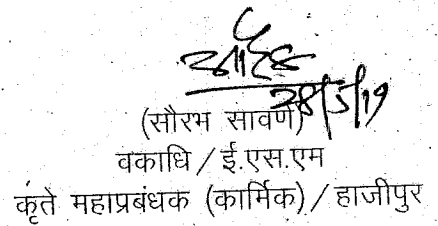 28/5/19
(सौरभ सावर्ण)
वकाधि / ई.एस.एम
कृते महाप्रबंधक (कार्मिक) / हाजीपुर